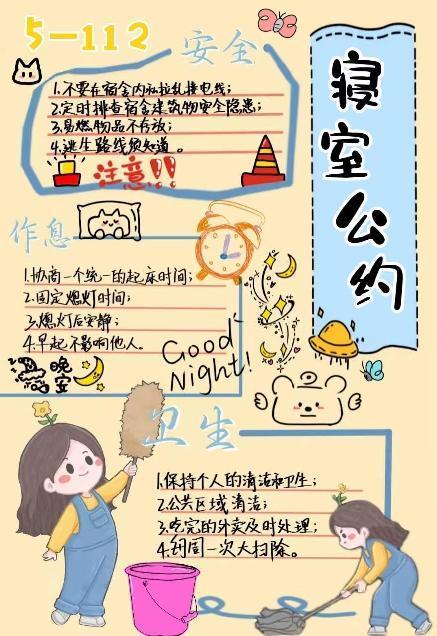 5-112
安全
1.不要在宿舍内私拉乱接电线;
2.定时排查宿舍建筑物安全隐患;
3.易燃物品不存放;
4.逃生路线须知道。
注意!!
寝室公约
作息
1.协商一个统一的起床时间;
2.固定熄灯时间;
3.熄灯后安静;
4.早起不影响他人。
晚安
Good
Night!
卫生
1.保持个人的清洁和卫生;
2.公共区域清洁;
3.吃完的外卖及时处理;
4.每周一次大扫除。